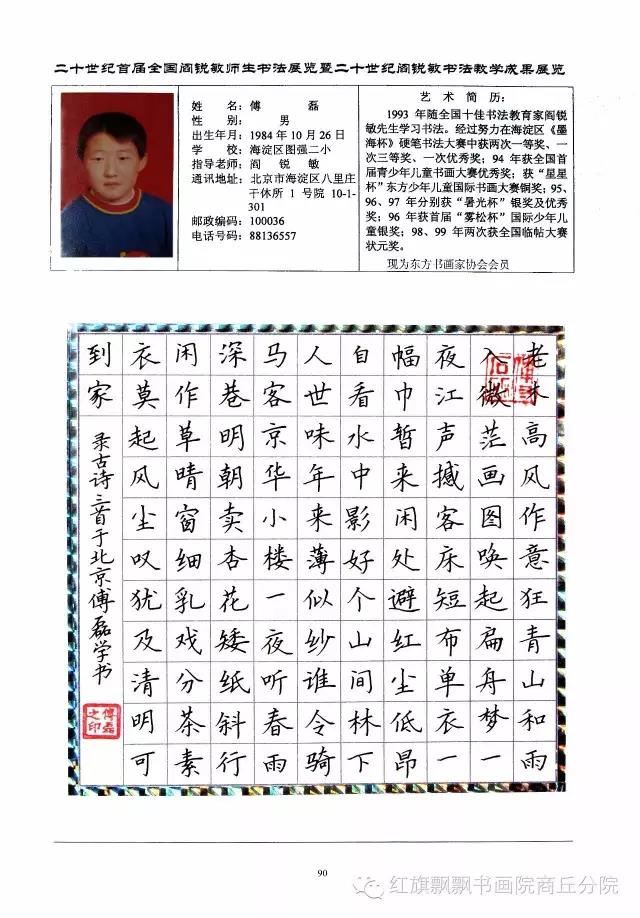 二十世纪首届全国阎锐敏师生书法展览暨二十世纪阎锐敏书法教学成果展览
姓 名：傅 磊
性 别：男
出生年月：1984年10月26日
学 校：海淀区图强二小
指导老师：阎 锐 敏
通讯地址：北京市海淀区八里庄
干休所 1 号院 10-1-
301
邮政编码：100036
电话号码：88136557
艺 术 简 历：
1993 年随全国十佳书法教育家阎锐
敏先生学习书法。经过努力在海淀区《墨
海杯》硬笔书法大赛中获两次一等奖、一
次三等奖、一次优秀奖；94 年获全国首
届青少年儿童书画大赛优秀奖；获“星星
杯”东方少年儿童国际书画大赛铜奖；95、
96、97 年分别获“暑光杯”银奖及优秀
奖；96 年获首届“雾松杯”国际少年儿
童银奖；98、99 年两次获全国临帖大赛
状元奖。
现为东方书画家协会会员
老木高风作意狂青山和雨
入微茫画图唤起扁舟梦一
夜江声撼客床短布单衣一
幅巾暂来闲处避红尘低昂
自看水中影好个山间林下
人世味年来薄似纱谁令骑
马客京华小楼一夜听春雨
深巷明朝卖杏花矮纸斜行
闲作草晴窗细乳戏分茶素
衣莫起风尘叹犹及清明可
到家
录古诗三首于北京傅磊学书
傅磊之印
90
红旗飘飘书画院商丘分院